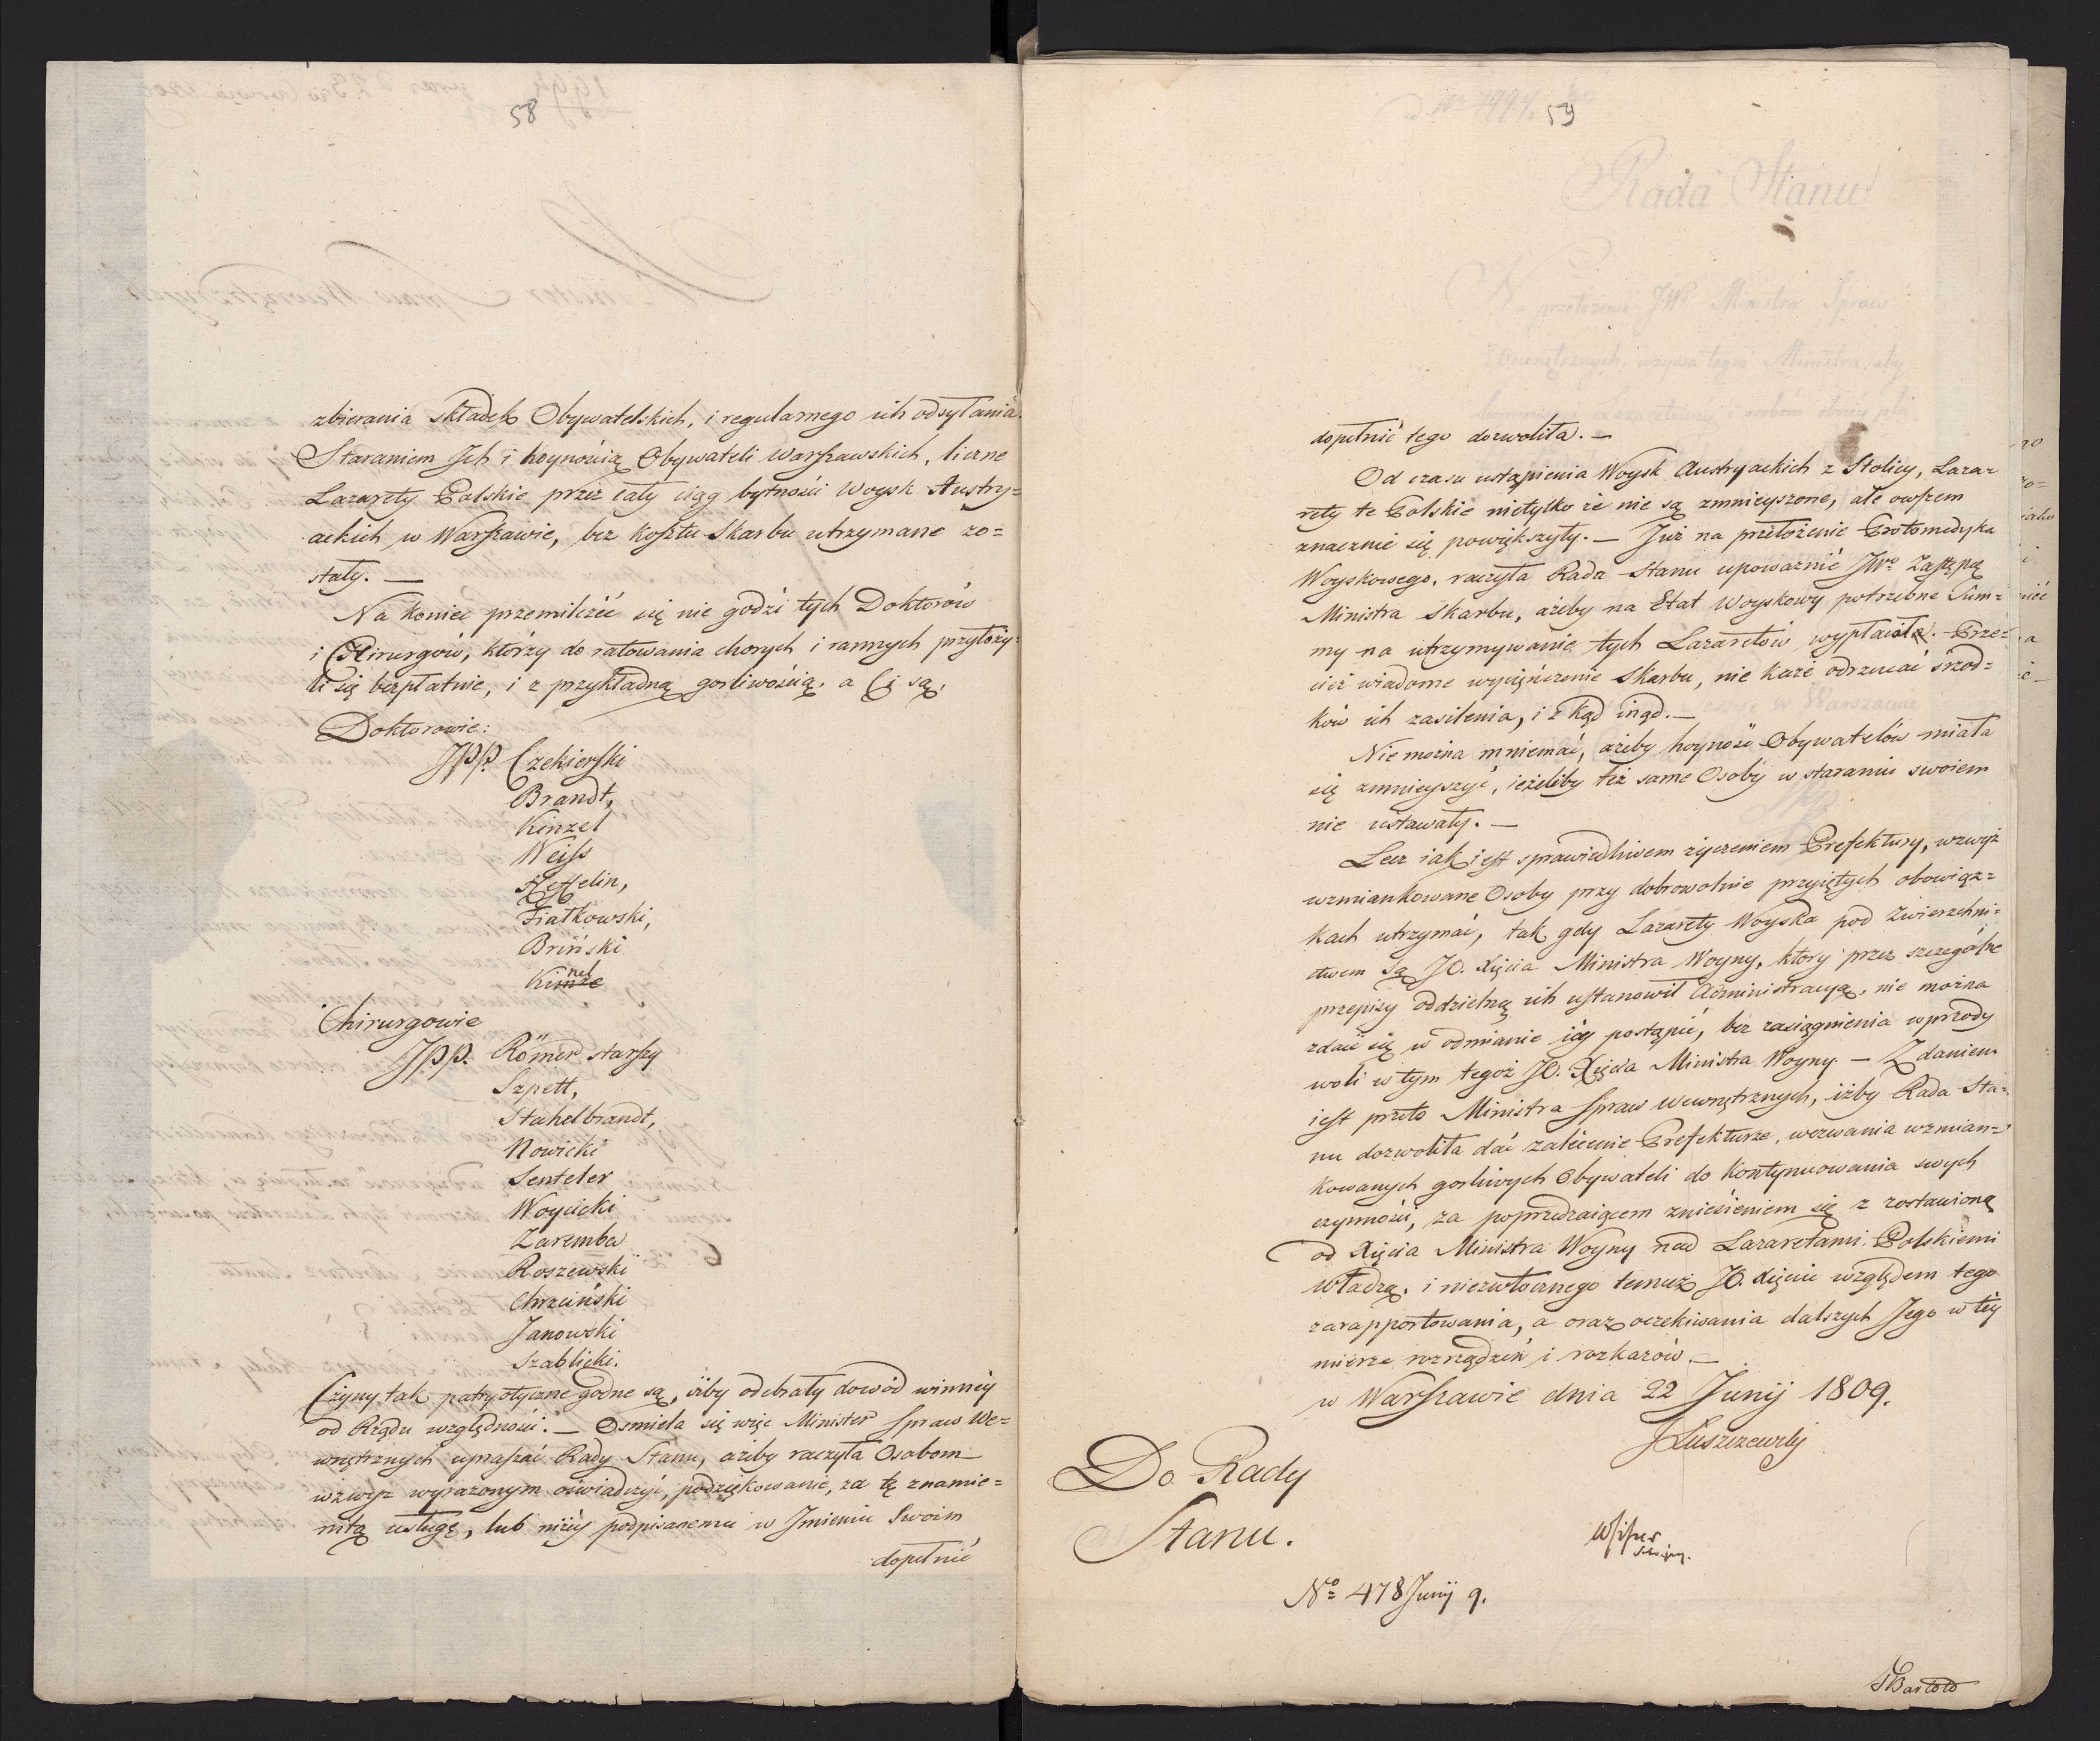 58
zbierania składek Obywatelskich, i regularnego ich odsyłania.
Staraniem Ich i hoynością Obywateli Warszawskich, liczne
Lazarety Polskie przez cały ciąg bytności Woysk Austry=
ackich w Warszawie, bez kosztu Skarbu utrzymane zo=
stały. —
Na koniec przemilczéć się nie godzi tych Doktorów
i Chirurgów, którzy do ratowania chorych i rannych przyłoży=
li się bezpłatnie, i z przykładną gorliwością. a Ci są,
Doktorowie:
JPP. Czekierski
Brandt,
Kinzel
Weiss
Heffelin,
Fiatkowski,
Briński
Chirurgowie
JPP. Römer starszy
Szpett,
Stahelbrandt,
Nowicki
Senteler
Woycicki
Zaremba
Roszewski
Chrzciński
Janowski
Szablicki.
Czyny tak patryotyczne godne są, iżby odebrały dowód winnéy
od Rządu względności. — Osmiela się więc Minister Spraw We=
wnętrznych upraszać Rady Stanu, ażeby raczyła Osobom
wzwyż wyrażonym oświadczyć, podziękowanie, za tę znamie=
nitą usługę, lub niżéy podpisanemu w Jmieniu Swoim
dopełnić
59
dopełnić tego dozwoliła. —
Od czasu ustąpienia Woysk Austryackich z Stolicy, Laza=
rety te Polskie nietylko że nie są zmnieyszone, ale owszem
znacznie się powiększyły. — Już na przełożenie Protomedyka
Woyskowego, raczyła Rada Stanu upoważnić JWo Zastępcę
Ministra Skarbu, ażeby na Etat Woyskowy potrzebne Sum=
my na utrzymywanie tych Lazaretów wypłacał. Prze=
cież wiadome wycieńczenie Skarbu, nie każe odrzucać śrzod=
ków ich zasilenia, i z kąd inąd. —
Nie można mniemać, ażeby hoyność Obywatelów miała
się zmnieyszyć, ieżeliby też same Osoby w staraniu swoiem
nie ustawały. —
Lecz iak iest sprawiedliwem życzeniem Prefektury, wzwyż
wzmiankowane Osoby przy dobrowolnie przyiętych obowiąz=
kach utrzymać, tak gdy Lazarety Woyska pod Zwierzchni=
ctwem są JO. Xięcia Ministra Woyny, który przez szczególne
przepisy oddzielną ich ustanowił Administracyą, nie można
zdaie się w odmianie iéy postąpić, bez zasiągnienia wprzody
woli w tym tegoż JO. Xięcia Ministra Woyny. — Zdaniem
iest przeto Ministra Spraw Wewnętrznych, iżby Rada Sta=
nu dozwoliła dać zalecenie Prefekturze, wezwania wzmian=
kowanych gorliwych Obywateli do kontynuowania swych
czynności, za poprzedzaiącem zniesieniem się z zostawioną
od Xięcia Ministra Woyny nad Lazaretami Polskiemi
władzą. i niezwłocznego temuż JO. Xięciu względem tego
zarapportowania, a oraz oczekiwania dalszych Jego w téy
mierze rozrządzeń i rozkazów. —
w Warszawie dnia 22 Junij 1809.
JŁuszczewski
Do Rady
Stanu.
No 478 Junij 9.